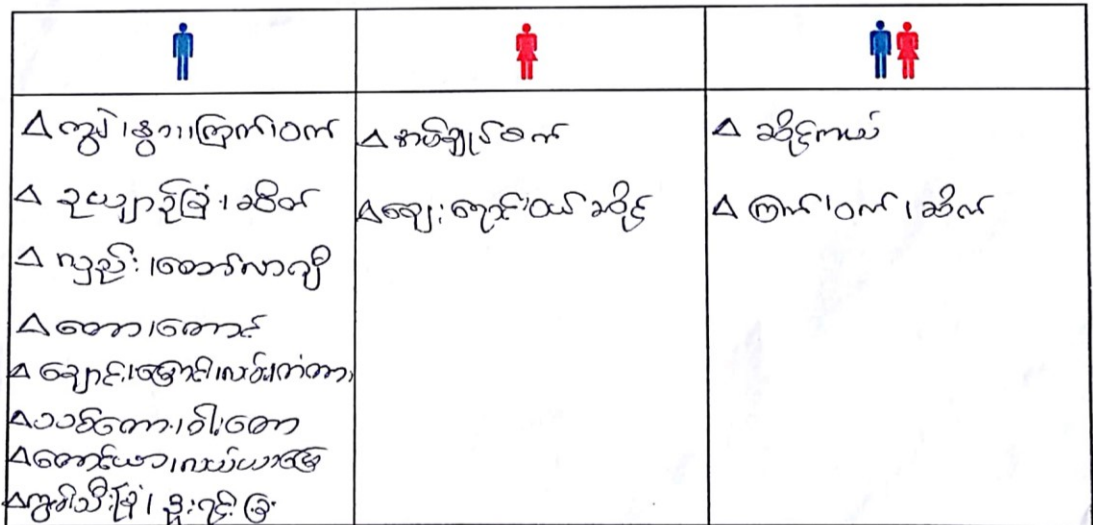 △ ကျွဲ၊ နွား၊ ကြက်၊ ဝက်
△ ဥယျာဉ်ခြံ၊ ဆိတ်
△ လှည်း၊ ထော်လာဂျီ
△ တော၊ တောင်
△ ချောင်း၊ မြောင်း၊ လမ်း၊ တံတား
△ သစ်တော၊ ဝါးတော
△ တောင်ယာ၊ လယ်ယာမြေ
△ ကွမ်းသီးခြံ၊ ဒူးရင်းခြံ
△ အပ်ချုပ်စက်
△ ဈေးရောင်းဝယ်ဆိုင်
△ ဆိုင်ကယ်
△ ကြက်၊ ဝက်၊ ဆိတ်